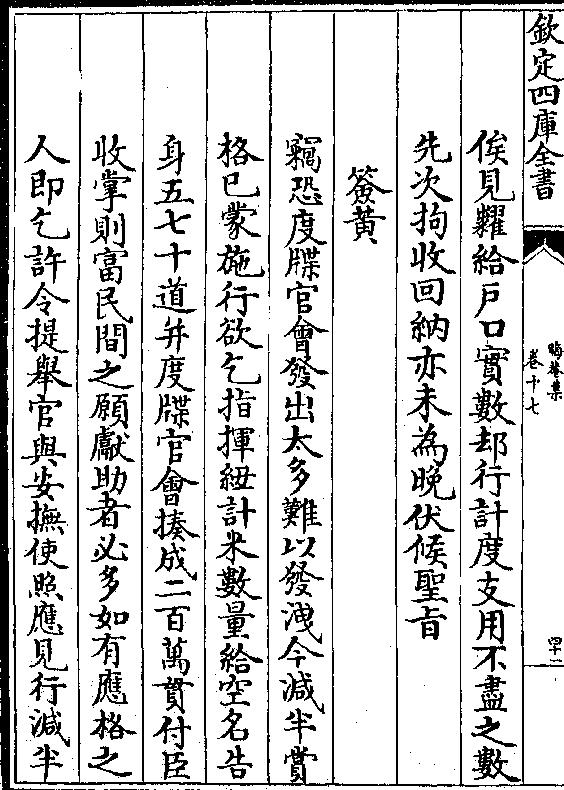 欽定四庫全書
晦菴集
卷十七
四十二
俟見糶給戶口實數却行計度支用不盡之數
先次拘收回納亦未為晚伏候聖㫖
簽黃
竊恐度牒官會發出太多難以發洩今減半賞
格已蒙施行欲乞指揮紐計米數量給空名告
身五七十道并度牒官會揍成二百萬貫付臣
收掌則富民間之願獻助者必多如有應格之
人即乞許令提舉官與安撫使照應見行減半